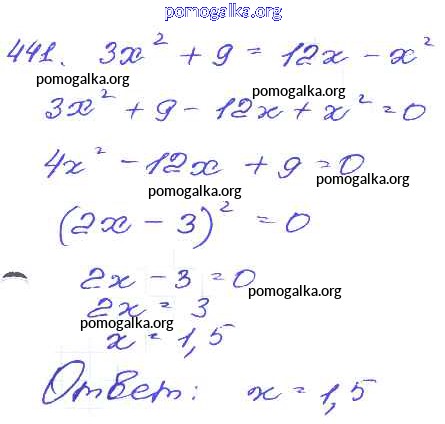 pomogalka.org
441. 3x² + 9 = 12x - x²
pomogalka.org
pomogalka.org
3x² + 9 - 12x + x² = 0
4x² - 12x + 9 = 0
pomogalka.org
pomogalka.org
(2x - 3)² = 0
2x - 3 = 0
pomogalka.org
2x = 3
pomogalka.org
x = 1,5
Ответ: x = 1,5